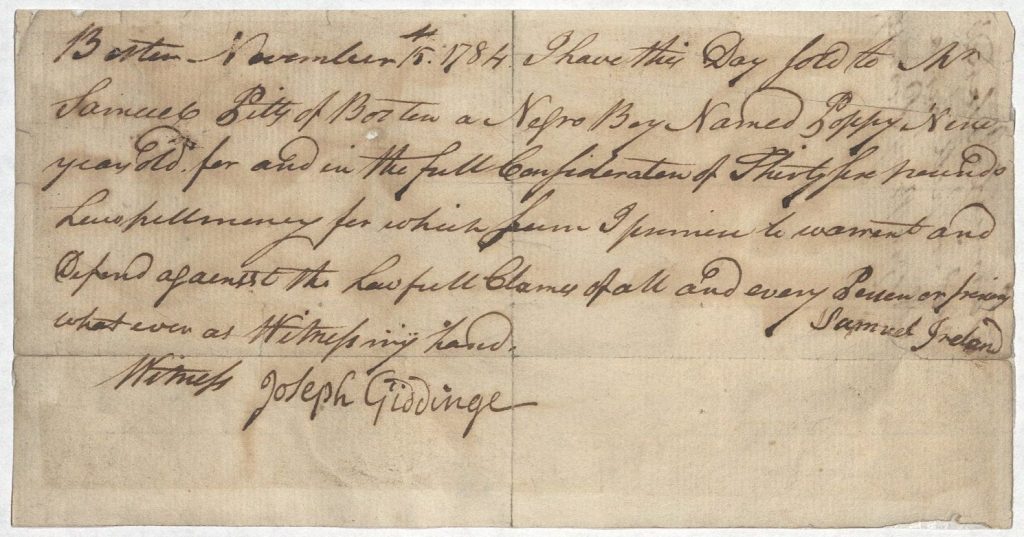 Boston November 15th 1784 I have this Day sold to Mr
Samuel Pitts of Boston a Negro Boy Named Poppy Nine
years old. for and in the full Consideraton of Thirty six pounds
Lawfull money for which sum I promise to warrent and
Defend against the Lawfull Clames of all and every Person or
what ever as Witness my hand.
Samuel Ireland
Witness Joseph Giddinge